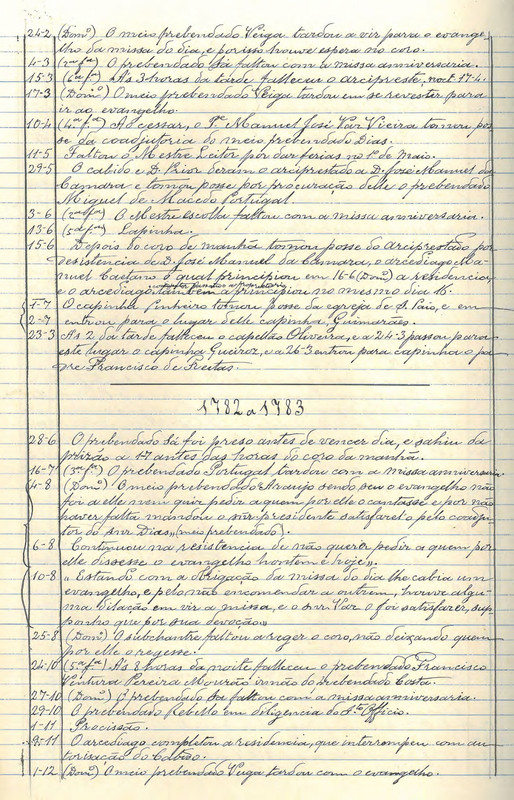 24-2 (Domº) O meio prebendado Veiga tardou a vir para o evange-
lho da missa do dia, e por isso houve espera no coro.
4-3 (2ª fª) O prebendado Sá faltou com a missa anniversaria.
15-3 (6ª fª) Ás 3 horas da tarde falleceu o arcipreste,
17-3 (Domº) O meio prebendado Veiga tardou em se revestir para
ir ao evangelho.
10-4 (4ª fª) Ao cessar, o Pe. Manuel José Vaz Vieira tomou pos-
se da coadjutoria do meio prebendado Dias.
11-5 Faltou o Mestre Leitor por dar ferias no 1º de Maio.
29-5 O cabido e D. Prior deram o arciprestado a D. José Manuel da
Camara e tomou posse por procuração delle o prebendado
Miguel de Macedo Portugal.
3-6 (2ª fª) O Mestre escolla faltou com a missa anniversaria.
13-6 (5ª fª) Capinha.
15-6 Depois do coro de manhã tomou posse do arciprestado por
desistencia de D. José Manuel da Camara, o arcediago Ma-
nuel Caetano o qual principiou em 16-6 (Domº) a residencia,
e o arcediago tambem a principiou no mesmo dia 16.
1-7 O capinha Pinheiro tomou posse da egreja de S. Paio, e em
2-7 entrou para o lugar delle capinha, Guimarães.
23-3 Ás 2 da tarde falleceu o capellão Oliveira, e a 24-3 passou para
este lugar o capinha Queiroz, e a 26-3 entrou para capinha o pa-
dre Francisco de Freitas.
1782 a 1783
28-6 O prebendado Sá foi preso antes de vencer dia, e sahiu da
prizão a 17 antes das horas do coro da manhã.
16-7 (3ª fª) O prebendado Portugal tardou com a missa anniversaria
4-8 (Domº) O meio prebendado Araujo sendo seu o evangelho não
foi a elle nem quiz pedir a quem por elle o cantasse e por não
haver falta mandou o snr presidente satisfazel-o pelo coadju-
tor do snr Dias" (meio prebendado).
6-8 Continuou na resistencia de não querer pedir a quem por
elle dissesse o evangelho hontem e hoje".
10-8 "Estando com a obrigação da missa do dia lhe cabia um
evangelho, e pelo não encomendar a outrem, houve algu-
ma dilação em vir a missa, e o snr Vaz o foi satisfazer, sup-
ponho que por sua devoção"
25-8 (Domº) O subchantre faltou a reger o coro, não deixando quem
por elle o regesse.
24-10 (5ª fª) Ás 8 horas da noite falleceu o prebendado Francisco
Ventura Pereira Mourão irmão do prebendado Costa.
27-10 (Domº) O prebendado Sá faltou com a missa anniversaria.
29-10 O prebendado Rebello em diligencia do Sto Officio.
1-11 Procissão.
9-11 O arcediago completou a residencia, que interrompeu com au-
torisação do Cabido.
1-12 (Domº) O meio prebendado Veiga tardou com o evangelho.